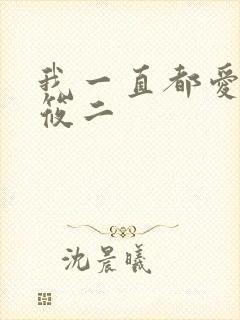 我一直都愛
筱二
沈晨曦